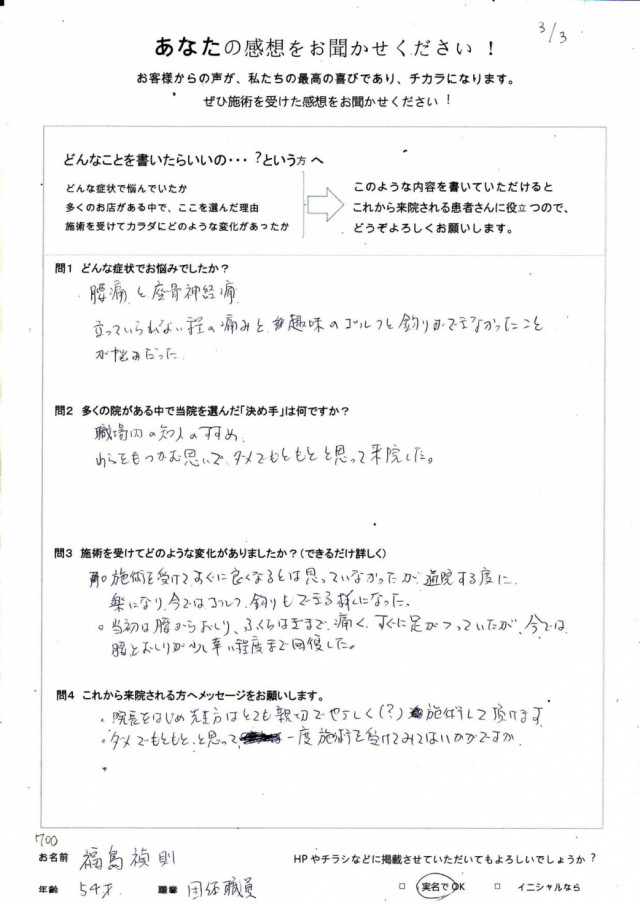 3/3
あなたの感想をお聞かせください！
お客様からの声が、私たちの最高の喜びであり、チカラになります。
ぜひ施術を受けた感想をお聞かせください！
どんなことを書いたらいいの・・・？という方へ
どんな症状で悩んでいたか
多くのお店がある中で、ここを選んだ理由
施術を受けてカラダにどのような変化があったか
このような内容を書いていただけると
これから来院される患者さんに役立つので、
どうぞよろしくお願いします。
問1 どんな症状でお悩みでしたか？
腰痛と座骨神経痛
立っていられない程の痛みと、趣味のゴルフと釣りができなかったこと
が悩みだった
問2 多くの院がある中で当院を選んだ「決め手」は何ですか？
職場内の知人のすすめ、
わらをもつかむ思いで、ダメでもともとと思って来院した。
問3 施術を受けてどのような変化がありましたか？（できるだけ詳しく）
施術を受けてすぐに良くなるとは思っていなかったが、通院する度に、
楽になり、今ではゴルフ、釣りもできる様になった。
○当初は腰からおしり、ふくらはぎまで、痛く、すぐに足がつっていたが、今では、
腰とおしりが少し辛い程度まで回復した。
問4 これから来院される方へメッセージをお願いします。
・院長をはじめ先生方はとても親切でやさしく(?)施術して頂けます
・ダメでもともと、と思って、一度施術を受けてみてはいかがですか
700
お名前 福島禎則
HPやチラシなどに掲載させていただいてもよろしいでしょうか？
年齢 54才 職業 団体職員
□ 実名でOK □ イニシャルなら